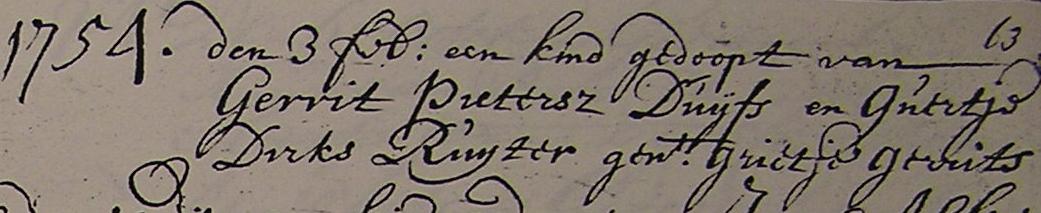 1754. den 3 feb: een kind gedoopt van 63
Gerrit Pietersz Duijfs en Guertje
Dirks Ruyter gent. Grietje Gerrits